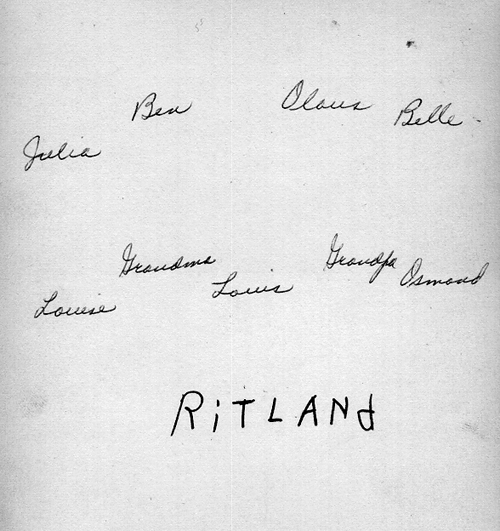 Julia Ben Olaus Belle
Louise Grandma Louis Grandpa Osmond
RiTLANd